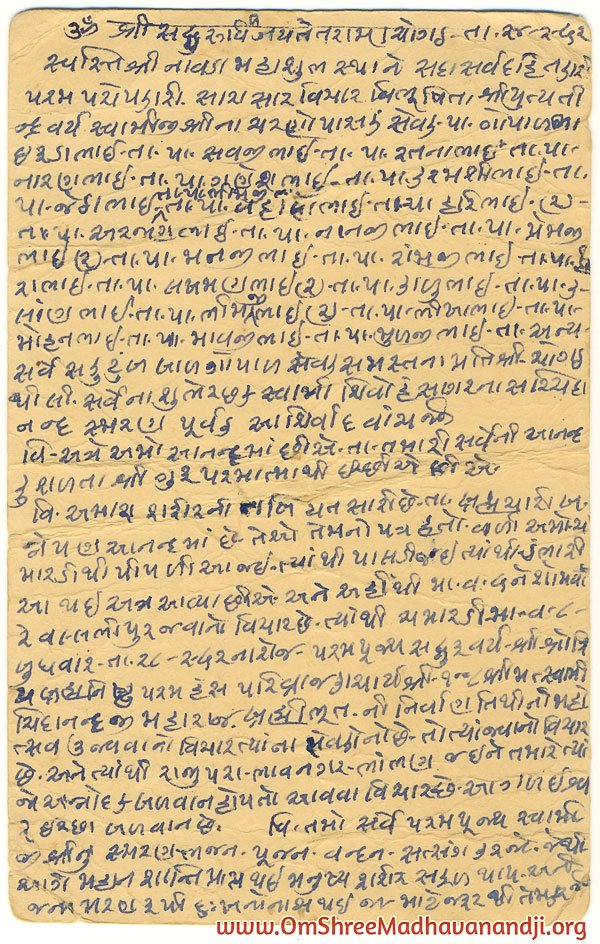 ૐ શ્રી સદ્ગુરુર્વિજયતેતરામ્ ચોગઠ-તા. ૨૪-૨-૬૨
સ્વસ્તિ શ્રી નાવડા મહાશુભ સ્થાને સદા સર્વદા હિતકારી
પરમ પરોપકારી. સારાસાર વિચાર વિભુષિતા શ્રીયુત્યતી
ન્દ્રવર્ય સ્વામીજીશ્રીના ચરણોપાસક સેવક. પા. ગોપાળભા
ઇ હરડાભાઇ-તા. પા. સવજીભાઇ-તા. પા. રતનાભાઇ તા. પા-
નારણભાઇ-તા. પા. ગણેશભાઇ-તા. પા. કરમશીભાઇ-તા.
પા. જેઠાભાઇ તા. પા. ભાઇ-તા. પા. હરિભાઇ-(૨)-
તા. પા. અરજણભાઇ-તા. પા. નાનજીભાઇ-તા. પા. પ્રેમજી
ભાઇ (૨)-તા. પા. મનજીભાઇ-તા. પા. રામજીભાઇ તા. પા. હી
રાભાઇ-તા. પા. લખમણભાઇ (૨)-તા. પા. કાળુભાઇ-તા. પા. ક
લાણભાઇ-તા. પા. ભીમજીભાઇ (૨)-તા. પા. લીંબાભાઇ-તા. પા-
મોહનભાઇ-તા. પા. માવજીભાઇ-તા. પા. મુળજીભાઇ-તા. અન્ય
સર્વે સકુટુંબ બાળગોપાળ સેવક સમસ્તના પ્રતિશ્રી-ચોગઠ
થી લી. સર્વેના શુભેચ્છક સ્વામી શિવોહં સાગરના સચ્ચિદા
નન્દ સ્મરણ પૂર્વક આશિર્વાદ વાંચજો
વિ-અત્રે અમો આનન્દમાં છીએ. તા. તમારી સર્વેની આનન્દ
કુશળતા શ્રી ગુરુ પરમાત્માથી ઇચ્છીએ છીએ.
વિ. અમારા શરીરની તબિયત સારી છે-તા. બ્રહ્મચારી બ
ન્ને પણ આનન્દમાં છે. તેઓ તેમનો પત્ર હતો. વળી અમો ચ
મારડીથી પીપળી આ જઇ-ત્યાંથી પાલડી જઇ ત્યાંથી-કંભારી
આ થઇ અત્ર આવ્યા છીએ. અને અહીંથી મા. વ. ૬ ને સોમવા
રે વાલભીપુર જવાનો વિચાર છે. ત્યાંથી ચમારડી મા-વ-૮-
બુધવાર-તા. ૨૮-૨-૬૨ ના રોજ-પરમપૂજ્ય સદ્ગુરુવર્ય-શ્રી શ્રોત્રિ
ય બ્રહ્મનિષ્ઠ પરમહંસ પરિવ્રાજકાચાર્ય શ્રી-૧૦૮ શ્રીમત્સ્વામી
ચિદાનન્દજી મહારાજ. બ્રહ્મીભૂત. ની નિર્વાણ તિથીનો મહો
ત્સવ ઉજવવાનો વિચાર ત્યાંના સેવકોનો છે-તો ત્યાં જવાનો વિચાર
છે. અને ત્યાંથી રાજપરા-ભાવનગર-ભોંલાણ જઇને તમારે ત્યાં
જો અન્નોદક બળવાન હોય તો આવવા વિચાર છે-આગળ ઈશ્વ
રેચ્છા બળવાન છે. વિ. તમો સર્વે પરમપૂજ્ય સ્વામી
જીશ્રીનું સ્મરણ-ભજન-પૂજન-વન્દન-સત્સંગ કરજો. જેથી
મહાન શાન્તિ પ્રાપ્ત થઇ મનુષ્ય શરીર સફળ થાય. અને
જન્મ મરણરૂપી દુઃખનો નાશ થઇ જા. માટે જરૂરથી તેમ
www.OmShreeMadhavanandji.org